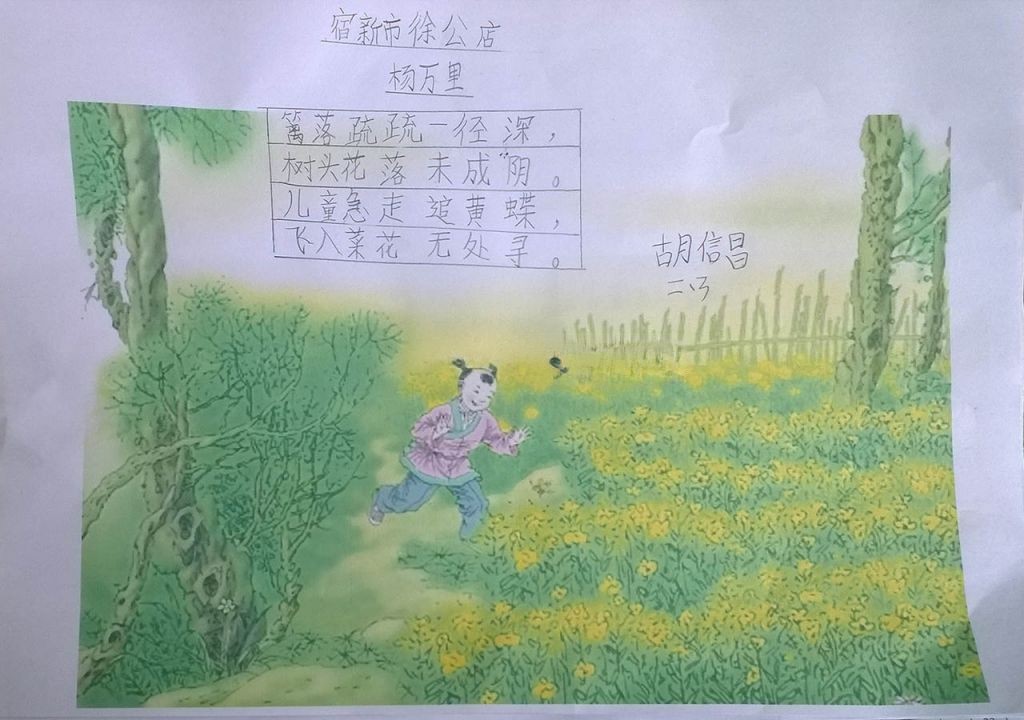 宿新市徐公店
杨万里
篱落疏疏一径深，
树头花落未成阴。
儿童急走追黄蝶，
飞入菜花无处寻。
胡信昌